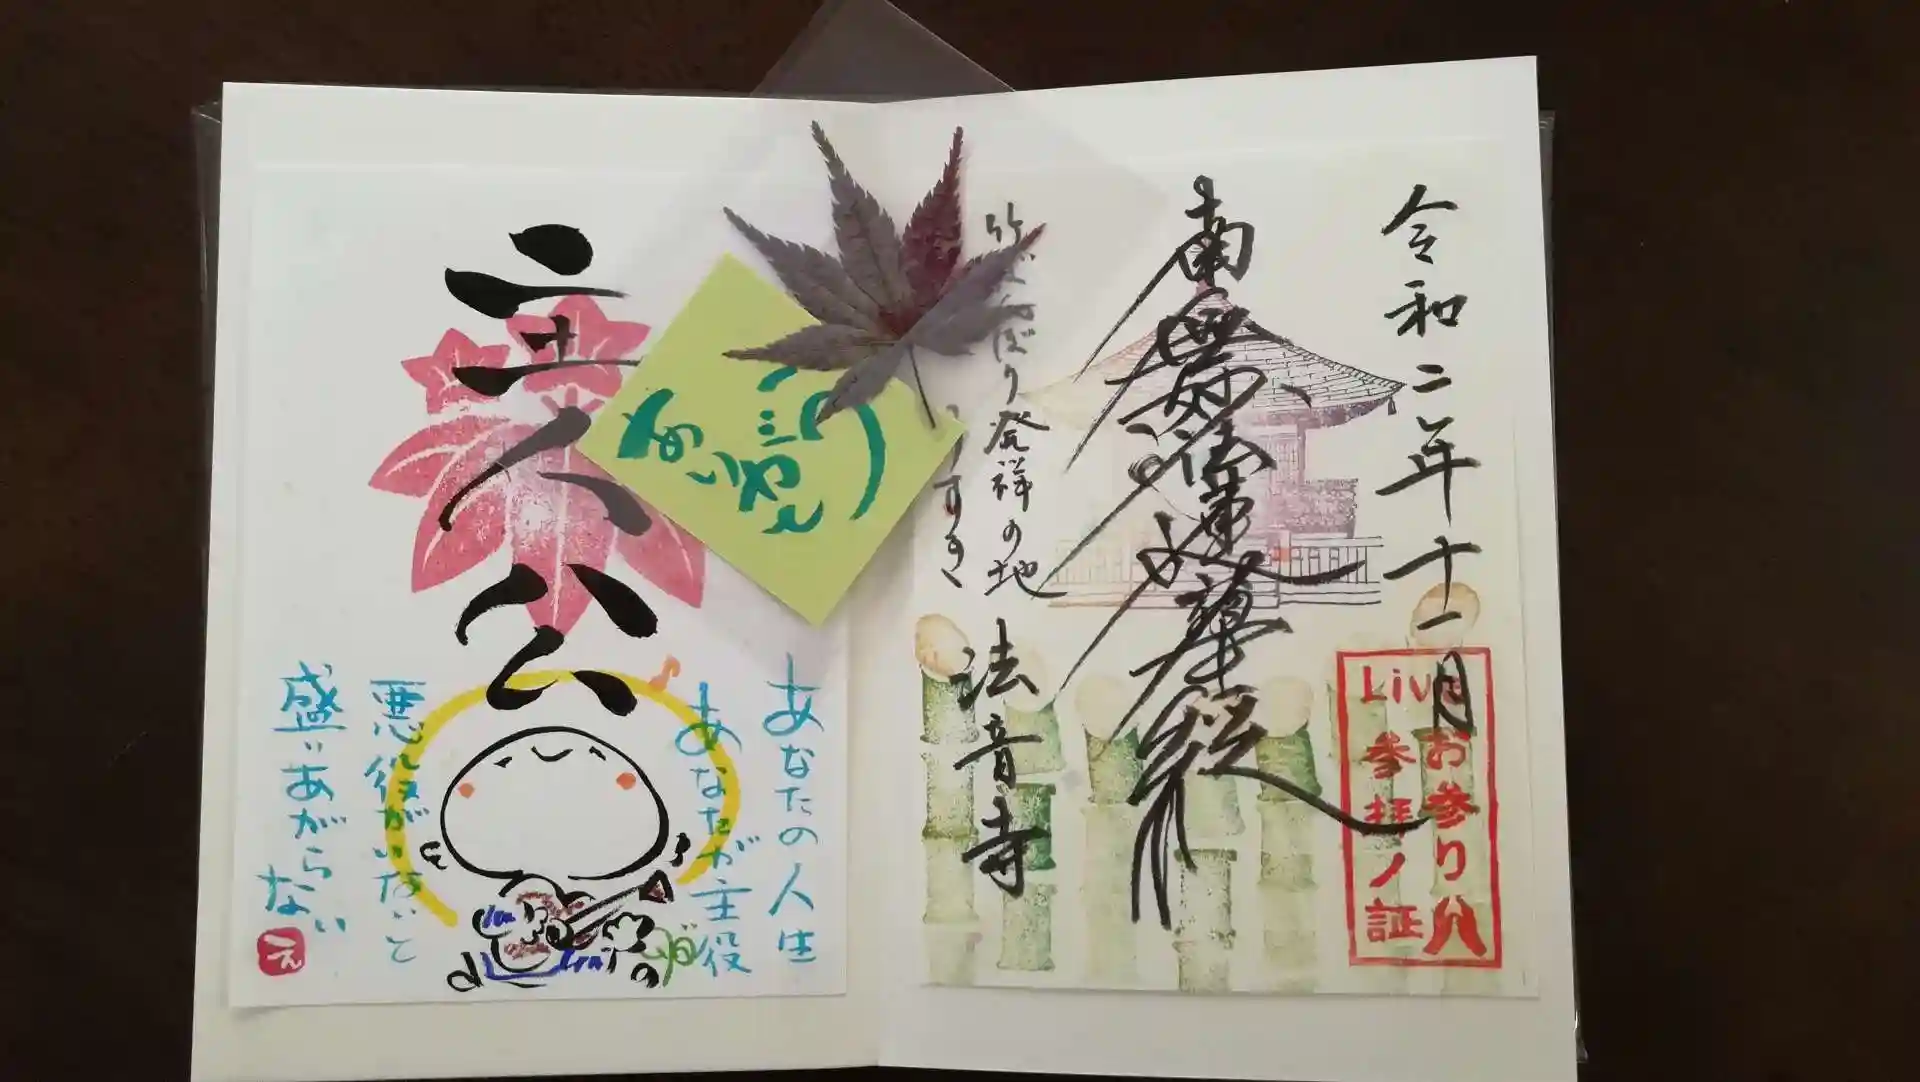 令和二年十一月
南無妙法蓮華経
竹
ぼり発祥の地
うすき
法音寺
Live お参り八
参拝ノ証
主人公
あなたの人生
あなたが主役
悪役がいないと
盛いあがらない